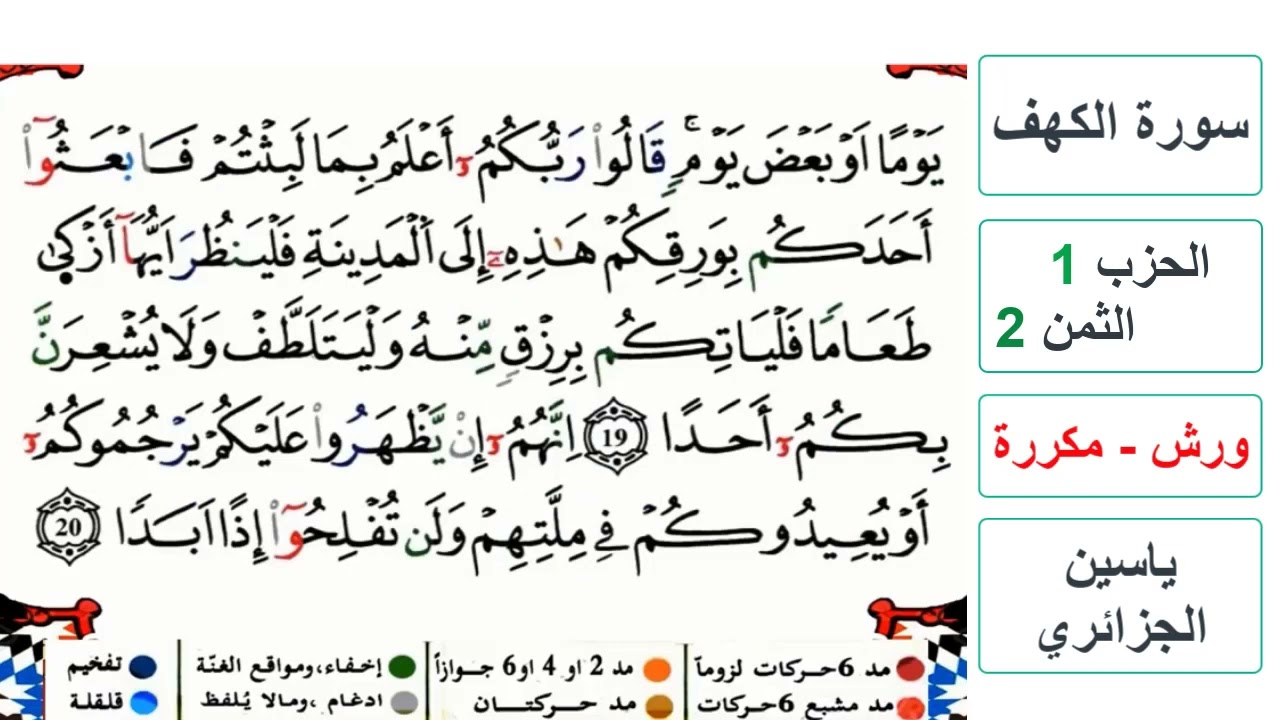 يَوْمًا اَوْ بَعْضَ يَوْمٍۖ قَالُوا رَبُّكُمُۥٓ أَعْلَمُ بِمَا لَبِثْتُمْ فَابْعَثُوٓا
أَحَدَكُم بِوَرِقِكُمْ هَٰذِهِۦٓ إِلَى اَ۬لْمَدِينَةِ فَلْيَنظُرَ اَيُّهَآ أَزْكَىٰ
طَعَامًا فَلْيَاتِكُم بِرِزْقٍ مِّنْهُ وَلْيَتَلَطَّفْ وَلَا يُشْعِرَنَّ
بِكُمُۥٓ أَحَدًا 19 اِنَّهُمُۥٓ إِنْ يَّظْهَرُوا عَلَيْكُمْ يَرْجُمُوكُمُۥٓ
أَوْ يُعِيدُوكُمْ فِي مِلَّتِهِمْ وَلَن تُفْلِحُوٓا إِذًا اَبَدًا 20
مد 6 حركات لزوماً
مد 2 او 4 او 6 جوازاً
إخفاء، ومواقع الغنّة
تفخيم
مد مشبع 6 حركات
مد حركتان
ادغام ، ومالا يُلفظ
قلقلة
سورة الكهف
الحزب 1
الثمن 2
ورش - مكررة
ياسين
الجزائري